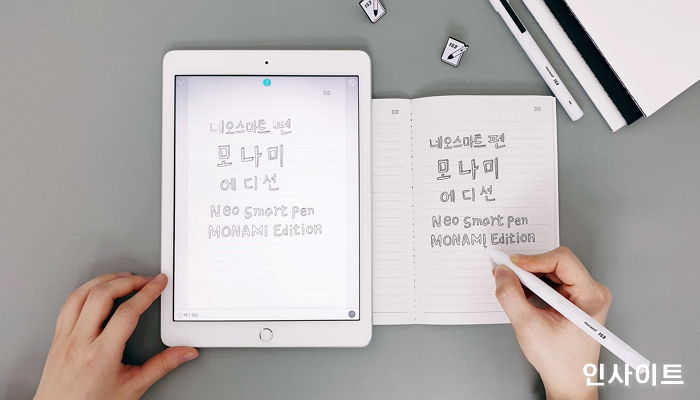 네오스마트 펜
모 나 미
에 디 션
Neo smart pen
MONAMI Edition
네오스마트 펜
모 나 미
에 디 션
Neo smart pen
MONAMI Edition
153
153
monami 153
monami 153
인사이트